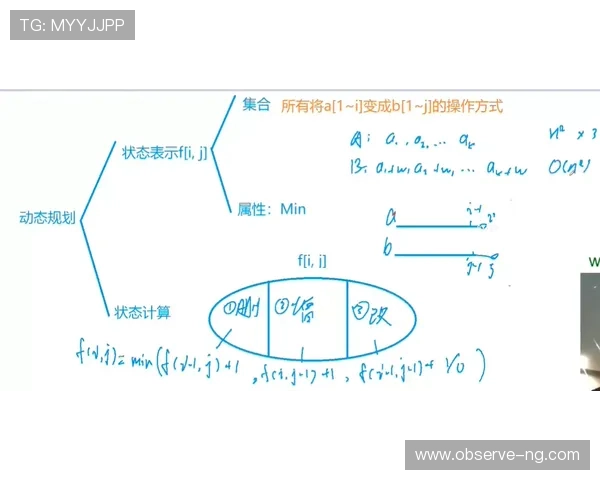 TG: MYYJJPP
集合 所有将a[1~i]变成b[1~j]的操作方式
状态表示f[i, j]
A: a₁, a₂, … aₖ n² × 3
B: a₁+w, a₂+w, … aₖ+w O(n²)
属性：Min
动态规划
a i-1 i
b j-1 j
f[i, j]
状态计算
①删 ②增 ③改
f(i,j)=min(f(i-1,j)+1, f(i,j-1)+1, f(i-1,j-1)+1/0)
W
www.observe-ng.com